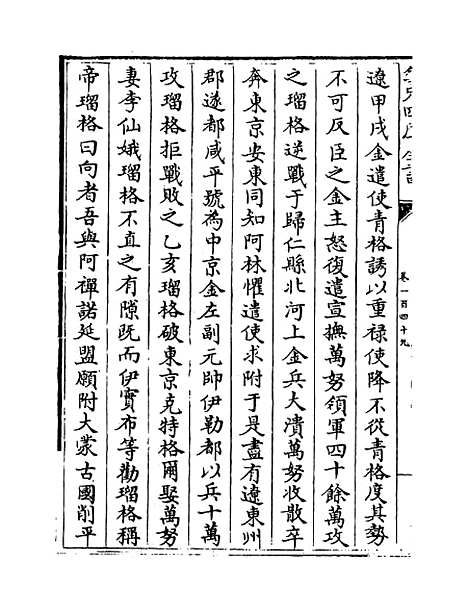 卷一百四十九
遼甲戌金遣使青格誘以重祿使降不從青格度其勢
不可反臣之金主怒復遣宣撫萬努領軍四十餘萬攻
之瑠格逆戰于歸仁縣北河上金兵大潰萬努收散卒
奔東京安東同知阿林懼遣使求附于是盡有遼東州
郡遂都咸平號為中京金左副元帥伊勒都以兵十萬
攻瑠格拒戰敗之乙亥瑠格破東京克特格爾娶萬努
妻李仙娥瑠格不直之有隙既而伊實布等勸瑠格稱
帝瑠格曰向者吾與阿禪諾延盟願附大蒙古國削平